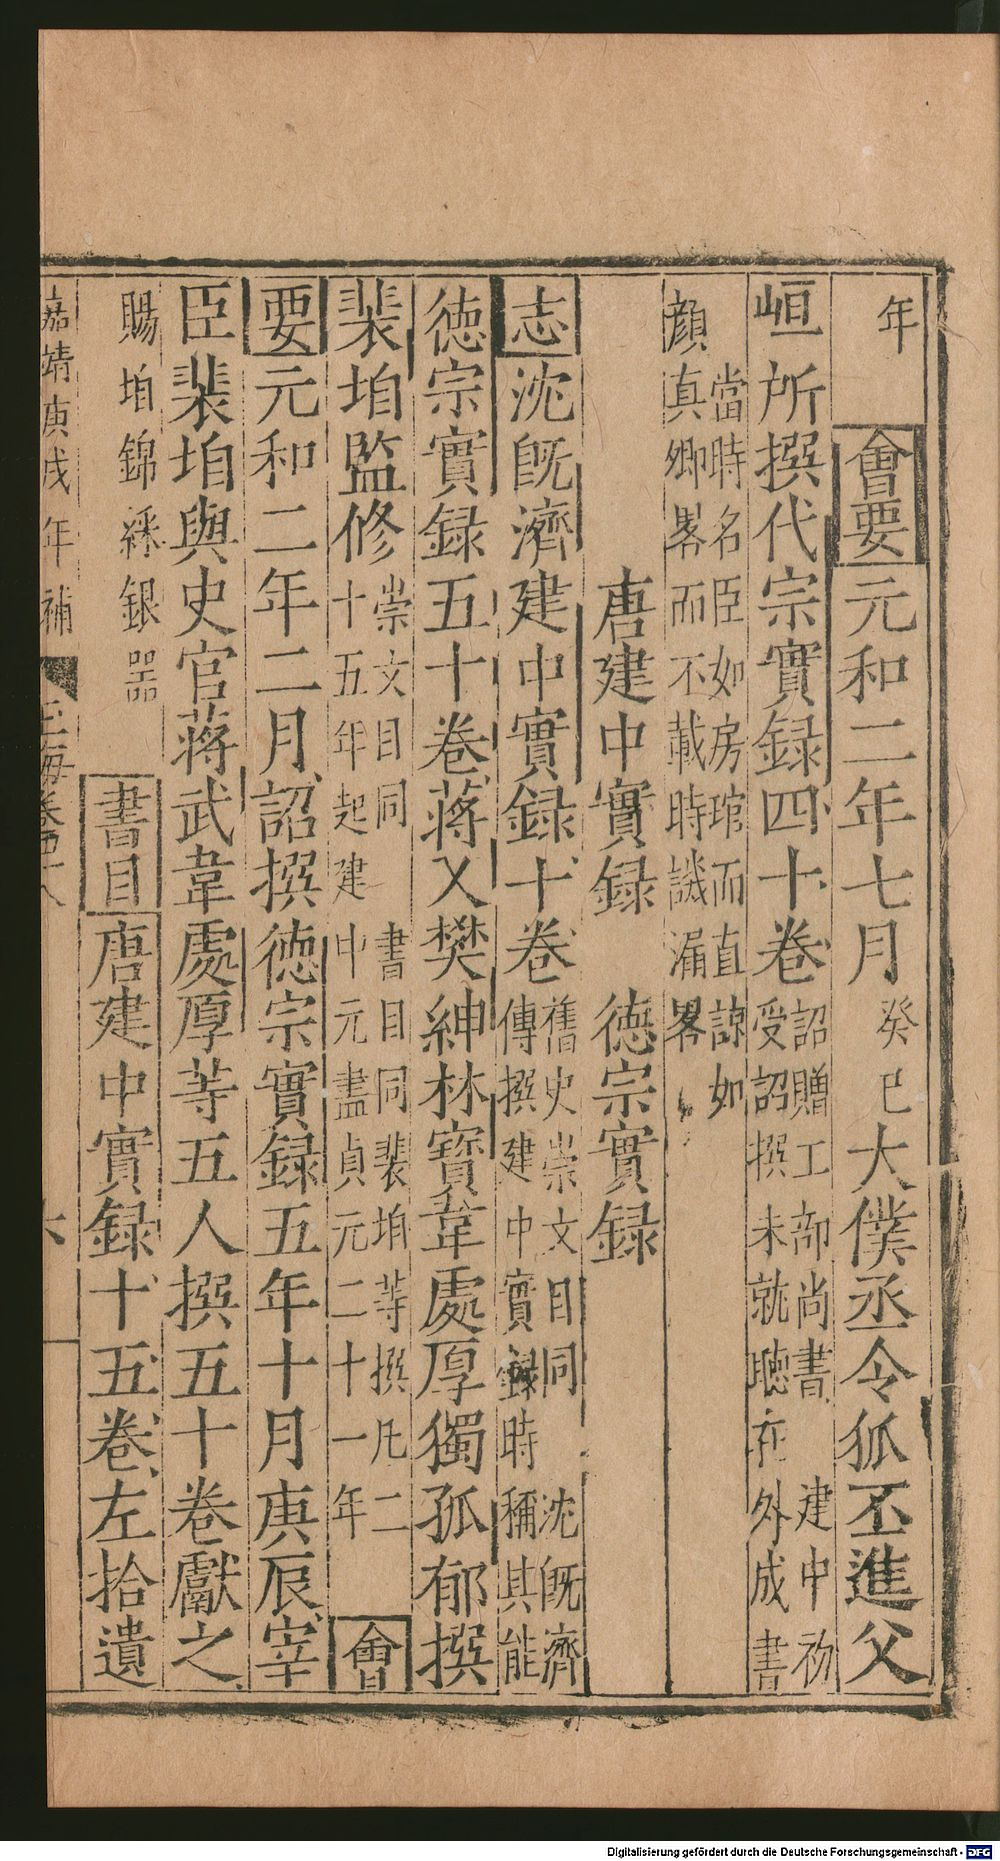 年　會要元和二年七月癸巳大僕丞令狐丕進父
峘所撰代宗實録四十卷詔贈工部尚書　建中初受詔撰未就聽在外成書
當時名臣如房琯而直諒如顔真卿畧而不載時譏漏畧
唐建中實録　德宗實録
志沈旣濟建中實録十卷舊史崇文目同　沈旣濟傳撰建中實録時稱其能
德宗實録五十卷蔣乂樊紳林寶韋處厚獨孤郁撰
裴垍監修崇文目同　書目同裴垍等撰凡二十五年起建中元盡貞元二十一年會
要元和二年二月詔撰德宗實録五年十月庚辰宰
臣裴垍與史官蔣武韋處厚等五人撰五十卷獻之
賜垍錦綵銀器　書目唐建中實録十五卷左拾遺
嘉靖庚戌年補　玉海卷四十八　六
Digitalisierung gefördert durch die Deutsche Forschungsgemeinschaft - DFG